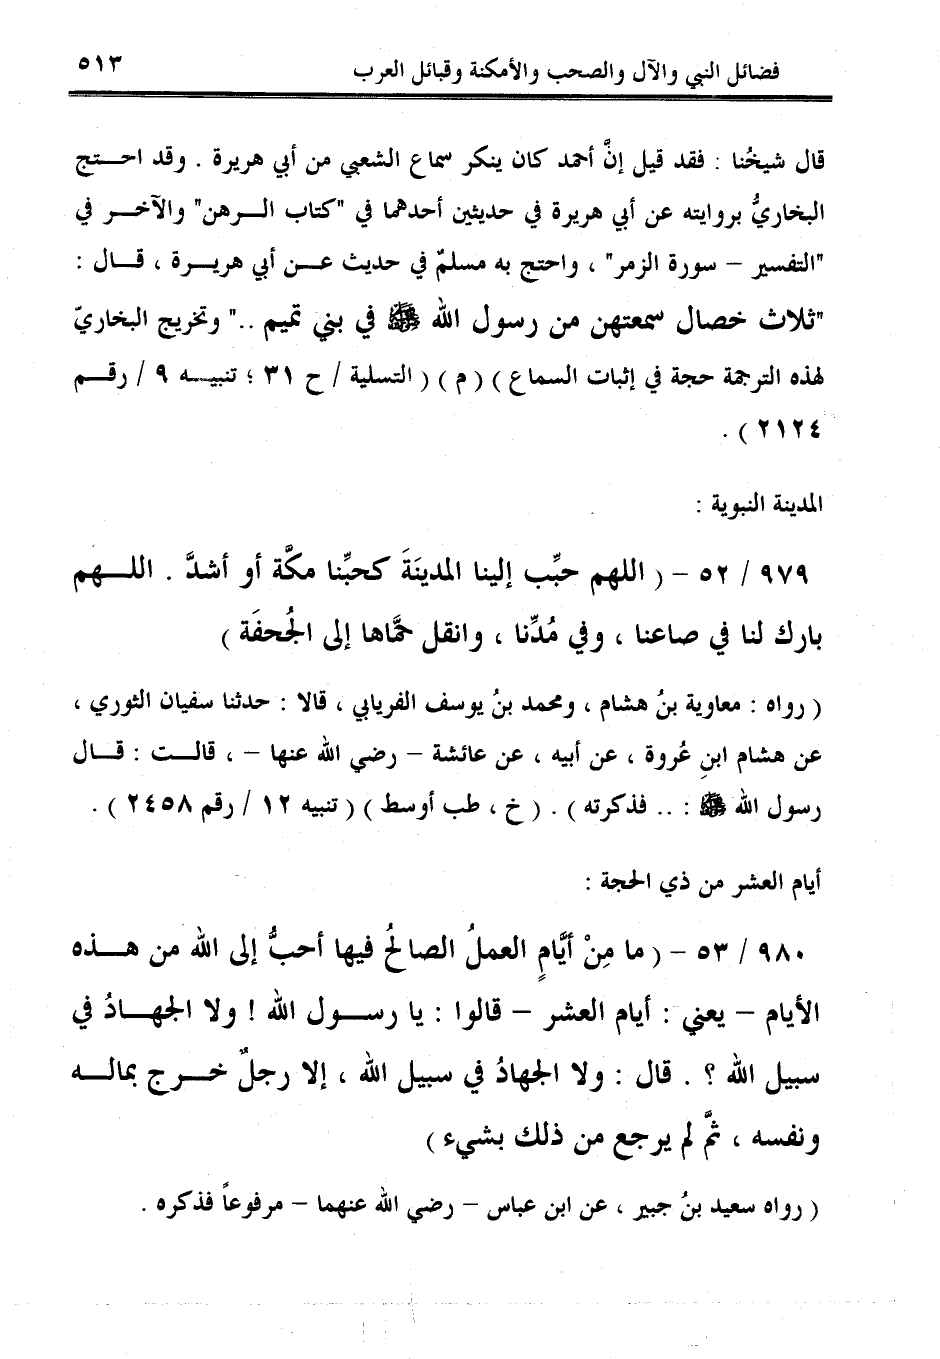 فضائل النبي والآل والصحب والأمكنة وقبائل العرب ٥١٣
قال شيخُنا : فقد قيل إنَّ أحمد كان ينكر سماع الشعبي من أبي هريرة . وقد احتج
البخاريُّ بروايته عن أبي هريرة في حديثين أحدهما في "كتاب الرهن" والآخر في
"التفسير – سورة الزمر" ، واحتج به مسلمٌ في حديث عن أبي هريرة ، قال :
"ثلاث خصال سمعتهن من رسول الله ﷺ في بني تميم .." وتخريج البخاريّ
لهذه الترجمة حجة في إثبات السماع ) ( م ) ( التسلية / ح ٣١ ؛ تنبيه ٩ / رقم
٢١٢٤ ) .
المدينة النبوية :
٩٧٩ / ٥٢ – ( اللهم حبِّب إلينا المدينَةَ كحبِّنا مكَّة أو أشدَّ . اللهم
بارك لنا في صاعنا ، وفي مُدِّنا ، وانقل حمَّاها إلى الجُحفَة )
( رواه : معاوية بنُ هشام ، ومحمد بنُ يوسف الفريابي ، قالا : حدثنا سفيان الثوري ،
عن هشام ابنِ عُروة ، عن أبيه ، عن عائشة – رضي الله عنها – ، قالت : قال
رسول الله ﷺ : .. فذكرته ) . ( خ ، طب أوسط ) ( تنبيه ١٢ / رقم ٢٤٥٨ ) .
أيام العشر من ذي الحجة :
٩٨٠ / ٥٣ – ( ما مِنْ أيَّامٍ العملُ الصالحُ فيها أحبُّ إلى الله من هذه
الأيام – يعني : أيام العشر – قالوا : يا رسول الله ! ولا الجهادُ في
سبيل الله ؟ . قال : ولا الجهادُ في سبيل الله ، إلا رجلٌ خرج بماله
ونفسه ، ثمَّ لم يرجع من ذلك بشيء )
( رواه سعيد بنُ جبير ، عن ابن عباس – رضي الله عنهما – مرفوعاً فذكره .